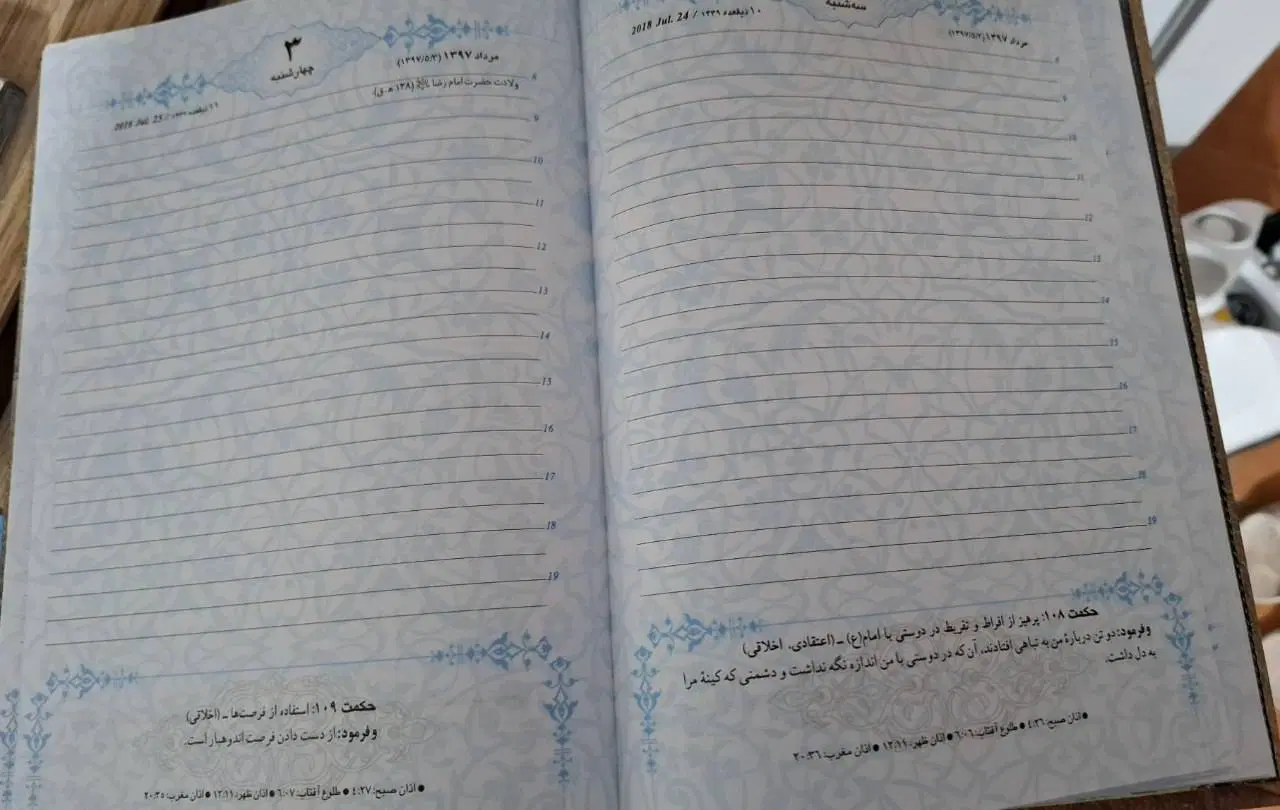 سه‌شنبه
مرداد ۱۳۹۷ (۱۳۹۷/۵/۲)
۱۰ ذیقعده ۱۴۳۹ / 2018 Jul. 24
8
9
10
11
12
13
14
15
16
17
18
19
حکمت ۱۰۸: پرهیز از افراط و تفریط در دوستی با امام(ع) ـ (اعتقادی، اخلاقی)
و فرمود: دو تن دربارهٔ من به تباهی افتادند، آن که در دوستی با من اندازه نگه نداشت و دشمنی که کینهٔ مرا
به دل داشت.
● اذان صبح: ۴:۲۶ ● طلوع آفتاب: ۶:۰۶ ● اذان ظهر: ۱۲:۱۱ ● اذان مغرب: ۲۰:۳۶
۳
چهارشنبه
مرداد ۱۳۹۷ (۱۳۹۷/۵/۳)
ولادت حضرت امام رضا (۱۴۸ ه‍.ق)
۱۱ ذیقعده ۱۴۳۹ / 2018 Jul. 25
8
9
10
11
12
13
14
15
16
17
18
19
حکمت ۱۰۹: استفاده از فرصت‌ها ـ (اخلاقی)
و فرمود: از دست دادن فرصت اندوهبار است.
● اذان صبح: ۴:۲۷ ● طلوع آفتاب: ۶:۰۷ ● اذان ظهر: ۱۲:۱۱ ● اذان مغرب: ۲۰:۳۵